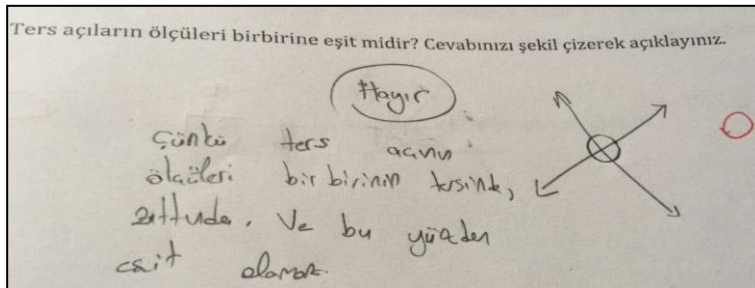 Ters açıların ölçüleri birbirine eşit midir? Cevabınızı şekil çizerek açıklayınız.
Hayır
Çünkü ters açının
ölçüleri bir birinin tersinde,
zıttıda. Ve bu yüzden
eşit olamaz.